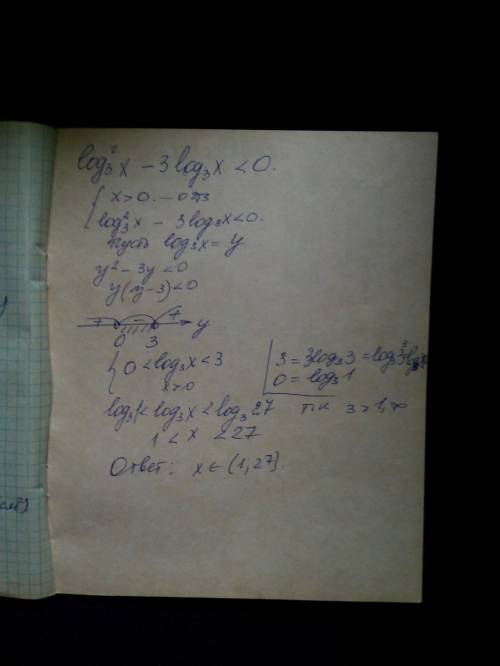 log₃²x - 3log₃x < 0.
{ x > 0. — ОДЗ
log₃²x - 3log₃x < 0.
Пусть log₃x = y
y² - 3y < 0
y(y-3) < 0
+ - + y
0 3
{ 0 < log₃x < 3
x > 0
3 = 3log₃3 = log₃3³
0 = log₃1
log₃1 < log₃x < log₃27 т.к 3 > 1,
1 < x < 27
Ответ: x ∈ (1,27).